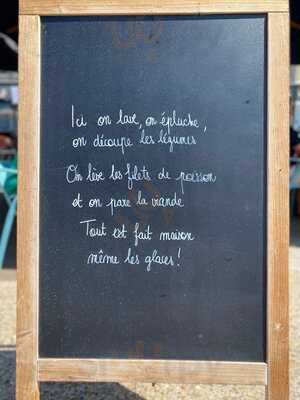 Ici on lave, on épluche,
on découpe les légumes
On lève les filets de poisson
et on pare la viande
Tout est fait maison
même les glaces !